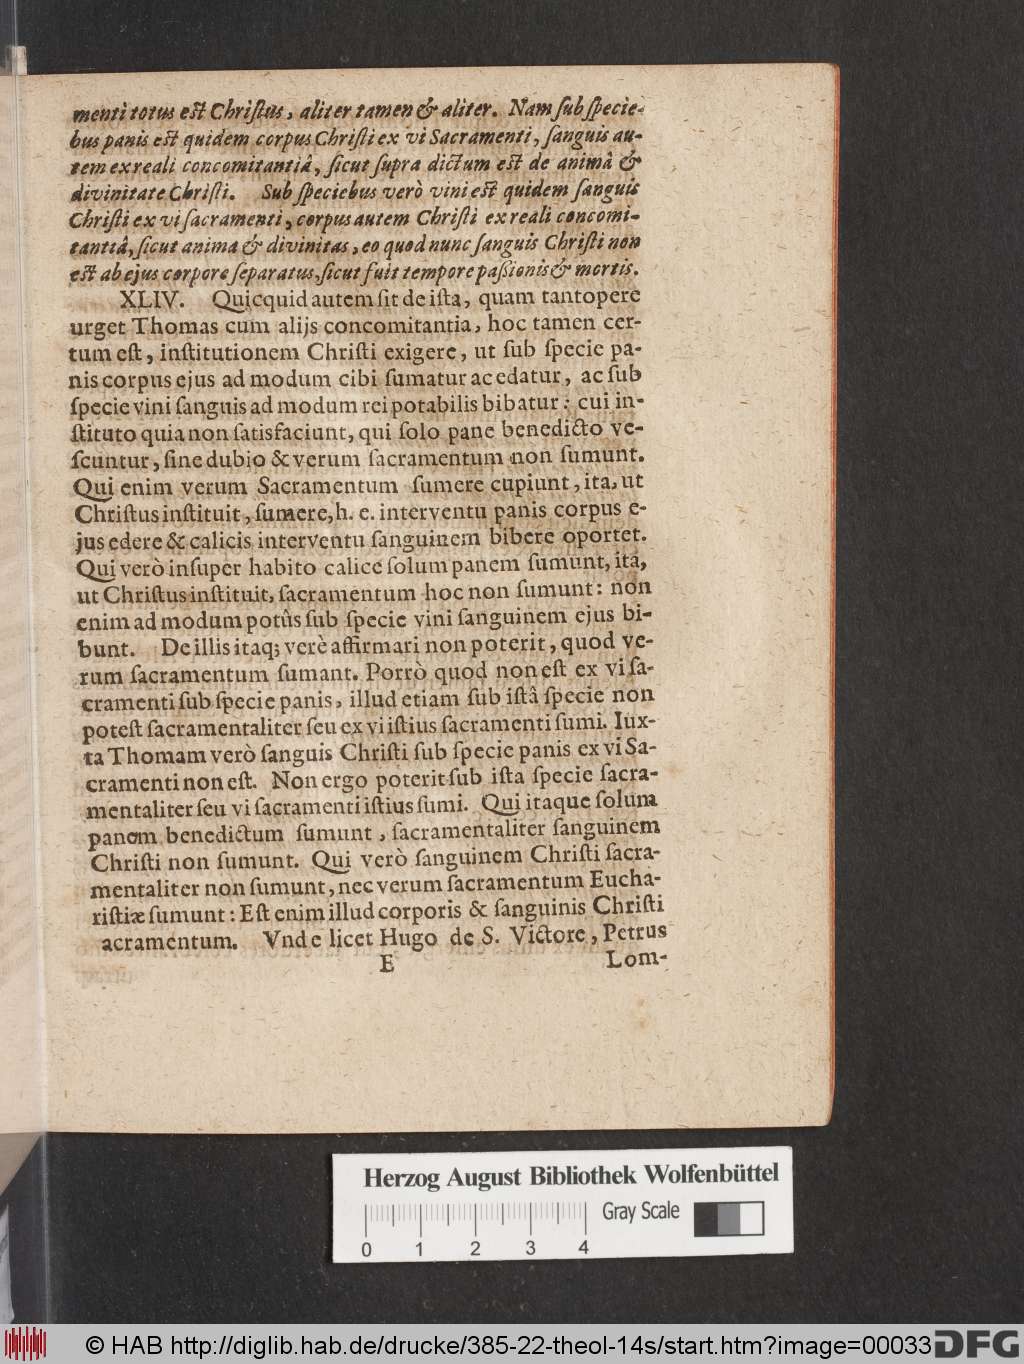 menti totus est Christus, aliter tamen & aliter. Nam sub specie-
bus panis est quidem corpus Christi ex vi Sacramenti, sanguis au-
tem ex reali concomitantiâ, sicut supra dictum est de animâ &
divinitate Christi. Sub speciebus verò vini est quidem sanguis
Christi ex vi sacramenti, corpus autem Christi ex reali concomi-
tantiâ, sicut anima & divinitas, eo quod nunc sanguis Christi non
est ab ejus corpore separatus, sicut fuit tempore paßionis & mortis.
XLIV. Quicquid autem sit de ista, quam tantopere
urget Thomas cum alijs concomitantia, hoc tamen cer-
tum est, institutionem Christi exigere, ut sub specie pa-
nis corpus ejus ad modum cibi sumatur ac edatur, ac sub
specie vini sanguis ad modum rei potabilis bibatur: cui in-
stituto quia non satisfaciunt, qui solo pane benedicto ve-
scuntur, sine dubio & verum sacramentum non sumunt.
Qui enim verum Sacramentum sumere cupiunt, ita, ut
Christus instituit, sumere, h. e. interventu panis corpus e-
jus edere & calicis interventu sanguinem bibere oportet.
Qui verò insuper habito calice solum panem sumunt, ita,
ut Christus instituit, sacramentum hoc non sumunt: non
enim ad modum potùs sub specie vini sanguinem ejus bi-
bunt. De illis itaq; verè affirmari non poterit, quod ve-
rum sacramentum sumant. Porrò quod non est ex vi sa-
cramenti sub specie panis, illud etiam sub istâ specie non
potest sacramentaliter seu ex vi istius sacramenti sumi. Iux-
ta Thomam verò sanguis Christi sub specie panis ex vi Sa-
cramenti non est. Non ergo poterit sub ista specie sacra-
mentaliter seu vi sacramenti istius sumi. Qui itaque solum
panem benedictum sumunt, sacramentaliter sanguinem
Christi non sumunt. Qui verò sanguinem Christi sacra-
mentaliter non sumunt, nec verum sacramentum Eucha-
ristiæ sumunt: Est enim illud corporis & sanguinis Christi
acramentum. Vnde licet Hugo de S. Victore, Petrus
E Lom-
Herzog August Bibliothek Wolfenbüttel
Gray Scale
0 1 2 3 4
© HAB http://diglib.hab.de/drucke/385-22-theol-14s/start.htm?image=00033
DFG